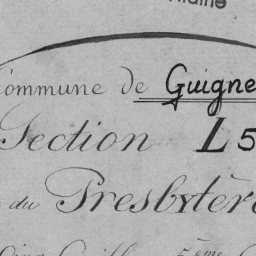 Commune de Guigne
Section L5
du Presbytère
5ème